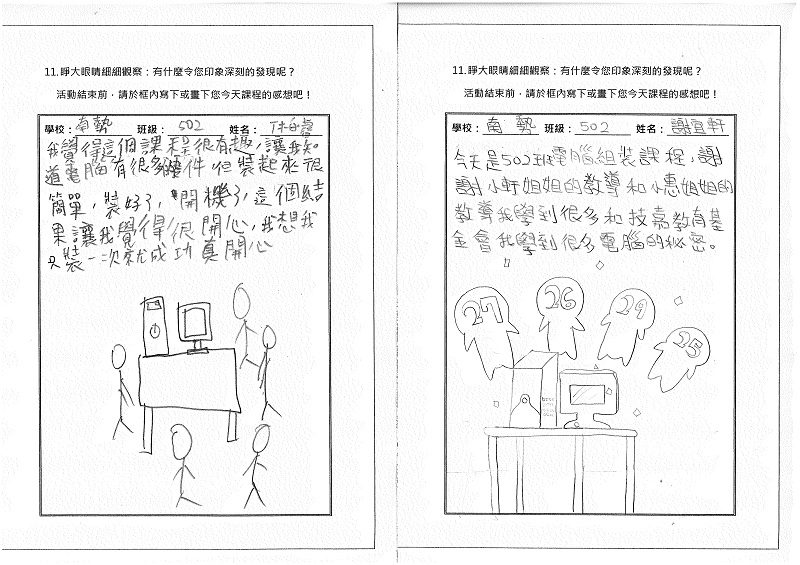 11.睜大眼睛細細觀察：有什麼令您印象深刻的發現呢？
活動結束前，請於框內寫下或畫下您今天課程的感想吧！
學校：南勢 班級：502 姓名：
我覺得這個課程很有趣，讓我知
道電腦有很多硬件，但裝起來很
簡單，裝好了，開機了，這個結
果讓我覺得很開心，我想我
只裝一次就成功真開心
11.睜大眼睛細細觀察：有什麼令您印象深刻的發現呢？
活動結束前，請於框內寫下或畫下您今天課程的感想吧！
學校：南勢 班級：502 姓名：謝宜軒
今天是502班電腦組裝課程，謝
謝小軒姐姐的教導和小惠姐姐的
教導我學到很多和技嘉教育基
金會我學到很多電腦的秘密。
27 26 29 25